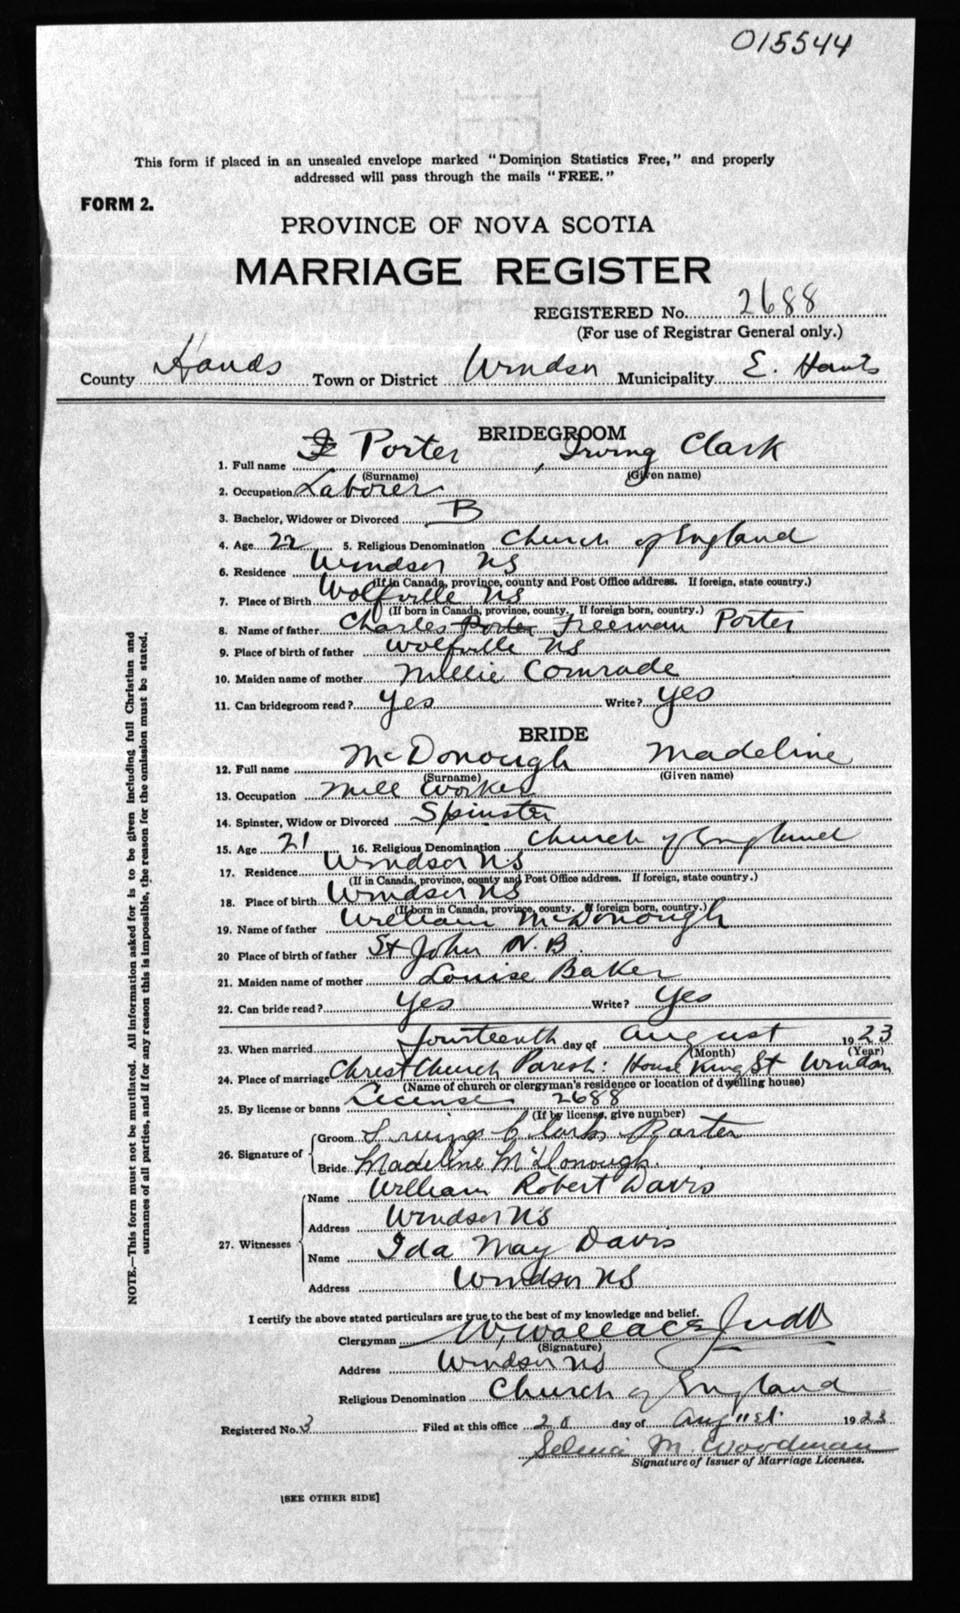 015544
This form if placed in an unsealed envelope marked "Dominion Statistics Free," and properly
addressed will pass through the mails "FREE."
FORM 2.
PROVINCE OF NOVA SCOTIA
MARRIAGE REGISTER
REGISTERED No. 2688
(For use of Registrar General only.)
County Hands Town or District Windsor Municipality E. Hants
BRIDEGROOM
1. Full name Porter, Irving Clark
(Surname) (Given name)
2. Occupation Laborer
3. Bachelor, Widower or Divorced B
4. Age 22 5. Religious Denomination Church of England
6. Residence Windsor NS
(If in Canada, province, county and Post Office address. If foreign, state country.)
7. Place of Birth Wolfville NS
(If born in Canada, province, county. If foreign born, country.)
8. Name of father Charles Porter Freeman Porter
9. Place of birth of father Wolfville NS
10. Maiden name of mother Millie Comrade
11. Can bridegroom read? Yes Write? Yes
BRIDE
12. Full name McDonough Madeline
(Surname) (Given name)
13. Occupation Mill Worker
14. Spinster, Widow or Divorced Spinster
15. Age 21 16. Religious Denomination Church of England
17. Residence Windsor NS
(If in Canada, province, county and Post Office address. If foreign, state country.)
18. Place of birth Windsor NS
(If born in Canada, province, county. If foreign born, country.)
19. Name of father William McDonough
20 Place of birth of father St John N.B.
21. Maiden name of mother Louise Baker
22. Can bride read? Yes Write? Yes
23. When married fourteenth day of August 1923
(Month) (Year)
24. Place of marriage Christ Church Parish: House King St Windsor
(Name of church or clergyman's residence or location of dwelling house)
25. By license or banns License 2688
(If by license, give number)
26. Signature of Groom Irving Clark Porter
Bride Madeline McDonough.
27. Witnesses Name William Robert Davis
Address Windsor NS
Name Ida May Davis
Address Windsor NS
I certify the above stated particulars are true to the best of my knowledge and belief.
Clergyman W. Wallace Judd
(Signature)
Address Windsor NS
Religious Denomination Church of England
Registered No. 3 Filed at this office 28 day of August 1923
Selina M. Woodman
Signature of Issuer of Marriage Licenses.
[SEE OTHER SIDE]
NOTE.—This form must not be mutilated. All information asked for is to be given including full Christian and
surnames of all parties, and if for any reason this is impossible, the reason for the omission must be stated.